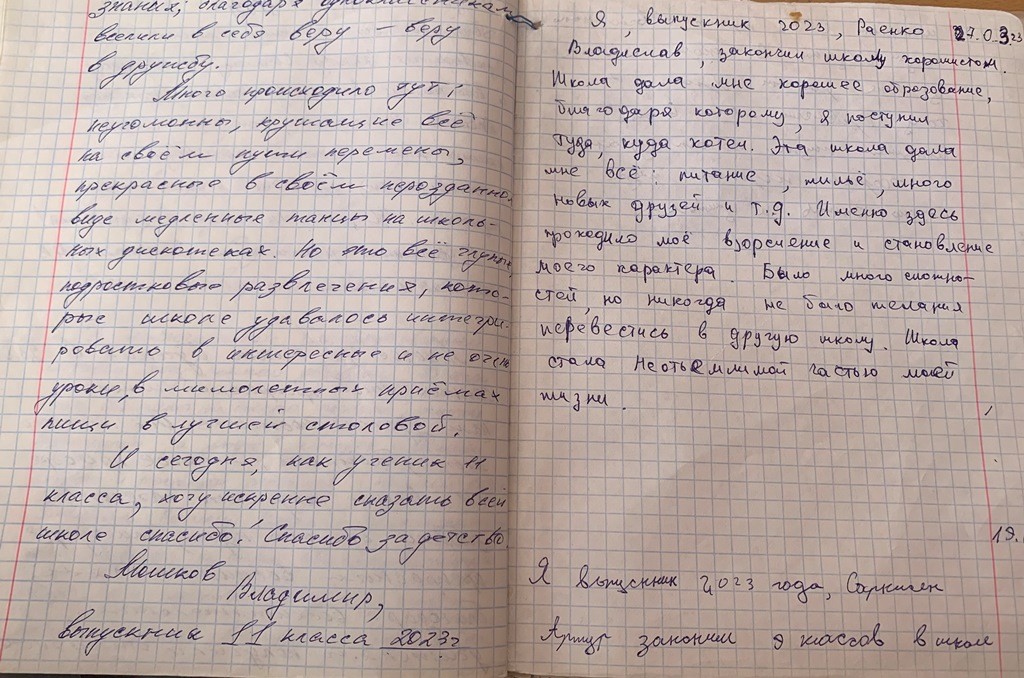 знаных, благодаря одноклассникам
вселили в себя веру – веру
в дружбу.
Много происходило тут:
неугомонны, крушащие всё
на своём пути перемены,
прекрасные в своём
виде медленные танцы на школь-
ных дискотеках. Но это всё глупые
подростковые развлечения, кото-
рые школе удавалось интегри-
ровать в интересные и не очень
уроки, в мимолетных приёмах
пищи в лучшей столовой.
И сегодня, как ученик 11
класса, хочу искренне сказать всей
школе спасибо! Спасибо за детство.
Мошков
Владимир,
выпускник 11 класса 2023г
27.03.23
Я, выпускник 2023, Раенко
Владислав, закончил школу хорошистом.
Школа дала мне хорошее образование,
благодаря которому, я поступил
туда, куда хотел. Эта школа дала
мне всё: питание, жильё, много
новых друзей и т.д. Именно здесь
проходило моё взросление и становление
моего характера. Было много сложно-
стей, но никогда не было желания
перевестись в другую школу. Школа
стала неотъемлимой частью моей
жизни.
19.
Я выпускник 2023 года, Саркисян
Артур закончил 9 классов в школе